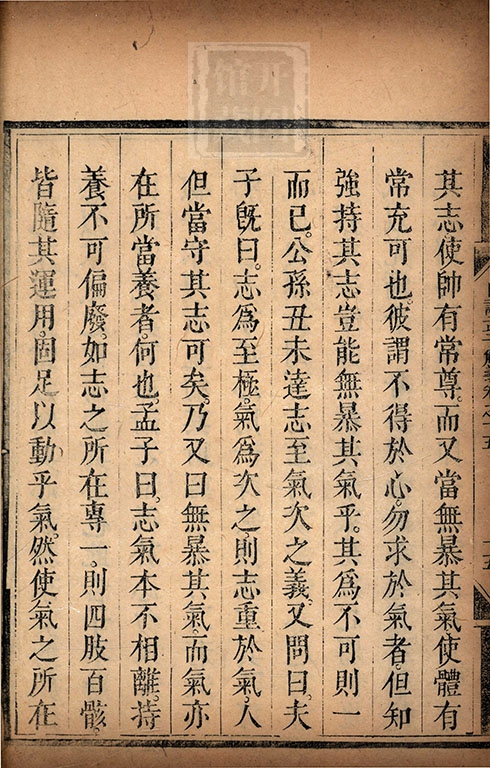 其志使帥有常尊。而又當無暴其氣使體有
常充可也。彼謂不得於心。勿求於氣者。但知
強持其志豈能無暴其氣乎。其爲不可則一
而已。公孫丑未達志至氣次之義。又問曰。夫
子旣曰。志爲至極。氣爲次之。則志重於氣。人
但當守其志可矣。乃又曰無暴其氣。而氣亦
在所當養者。何也。孟子曰。志氣本不相離。持
養不可偏廢。如志之所在專一。則四肢百骸。
皆隨其運用。固足以動乎氣。然使氣之所在